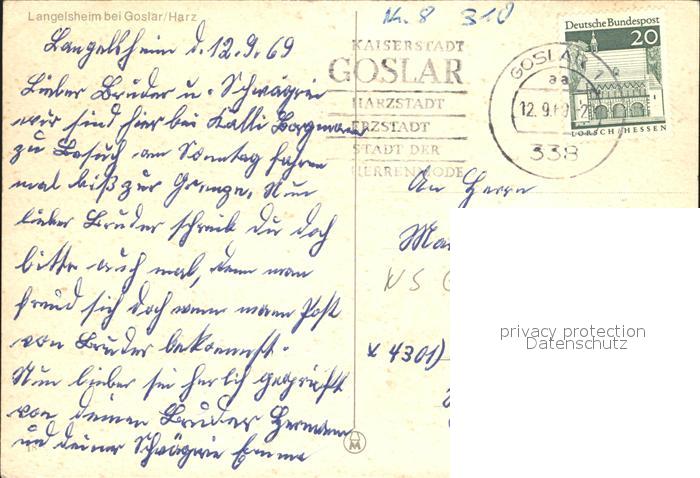 Langelsheim bei Goslar/Harz
Nr. 8 310
Langelsheim d. 12.9.69
Lieber Bruder u. Schwägrie
wir sind hier bei Kätti Borgmann
zu Besuch am Sonntag fahren
mal biß zur Grenze. Nun
lieber Bruder schreib du doch
bitte auch mal, denn man
freud sich doch wenn mann Post
von Bruder bekommst.
Nun lieber sei herlich gegrüßt
von deinen Bruder Hermann
und deiner Schwägrie Emma
KAISERSTADT
GOSLAR
HARZSTADT
ERZSTADT
STADT DER
HERRENMODE
GOSLAR
aa
12.9.69
338
Deutsche Bundespost
20
LORSCH/HESSEN
An Herrn
Ma
4301)
privacy protection
Datenschutz
M